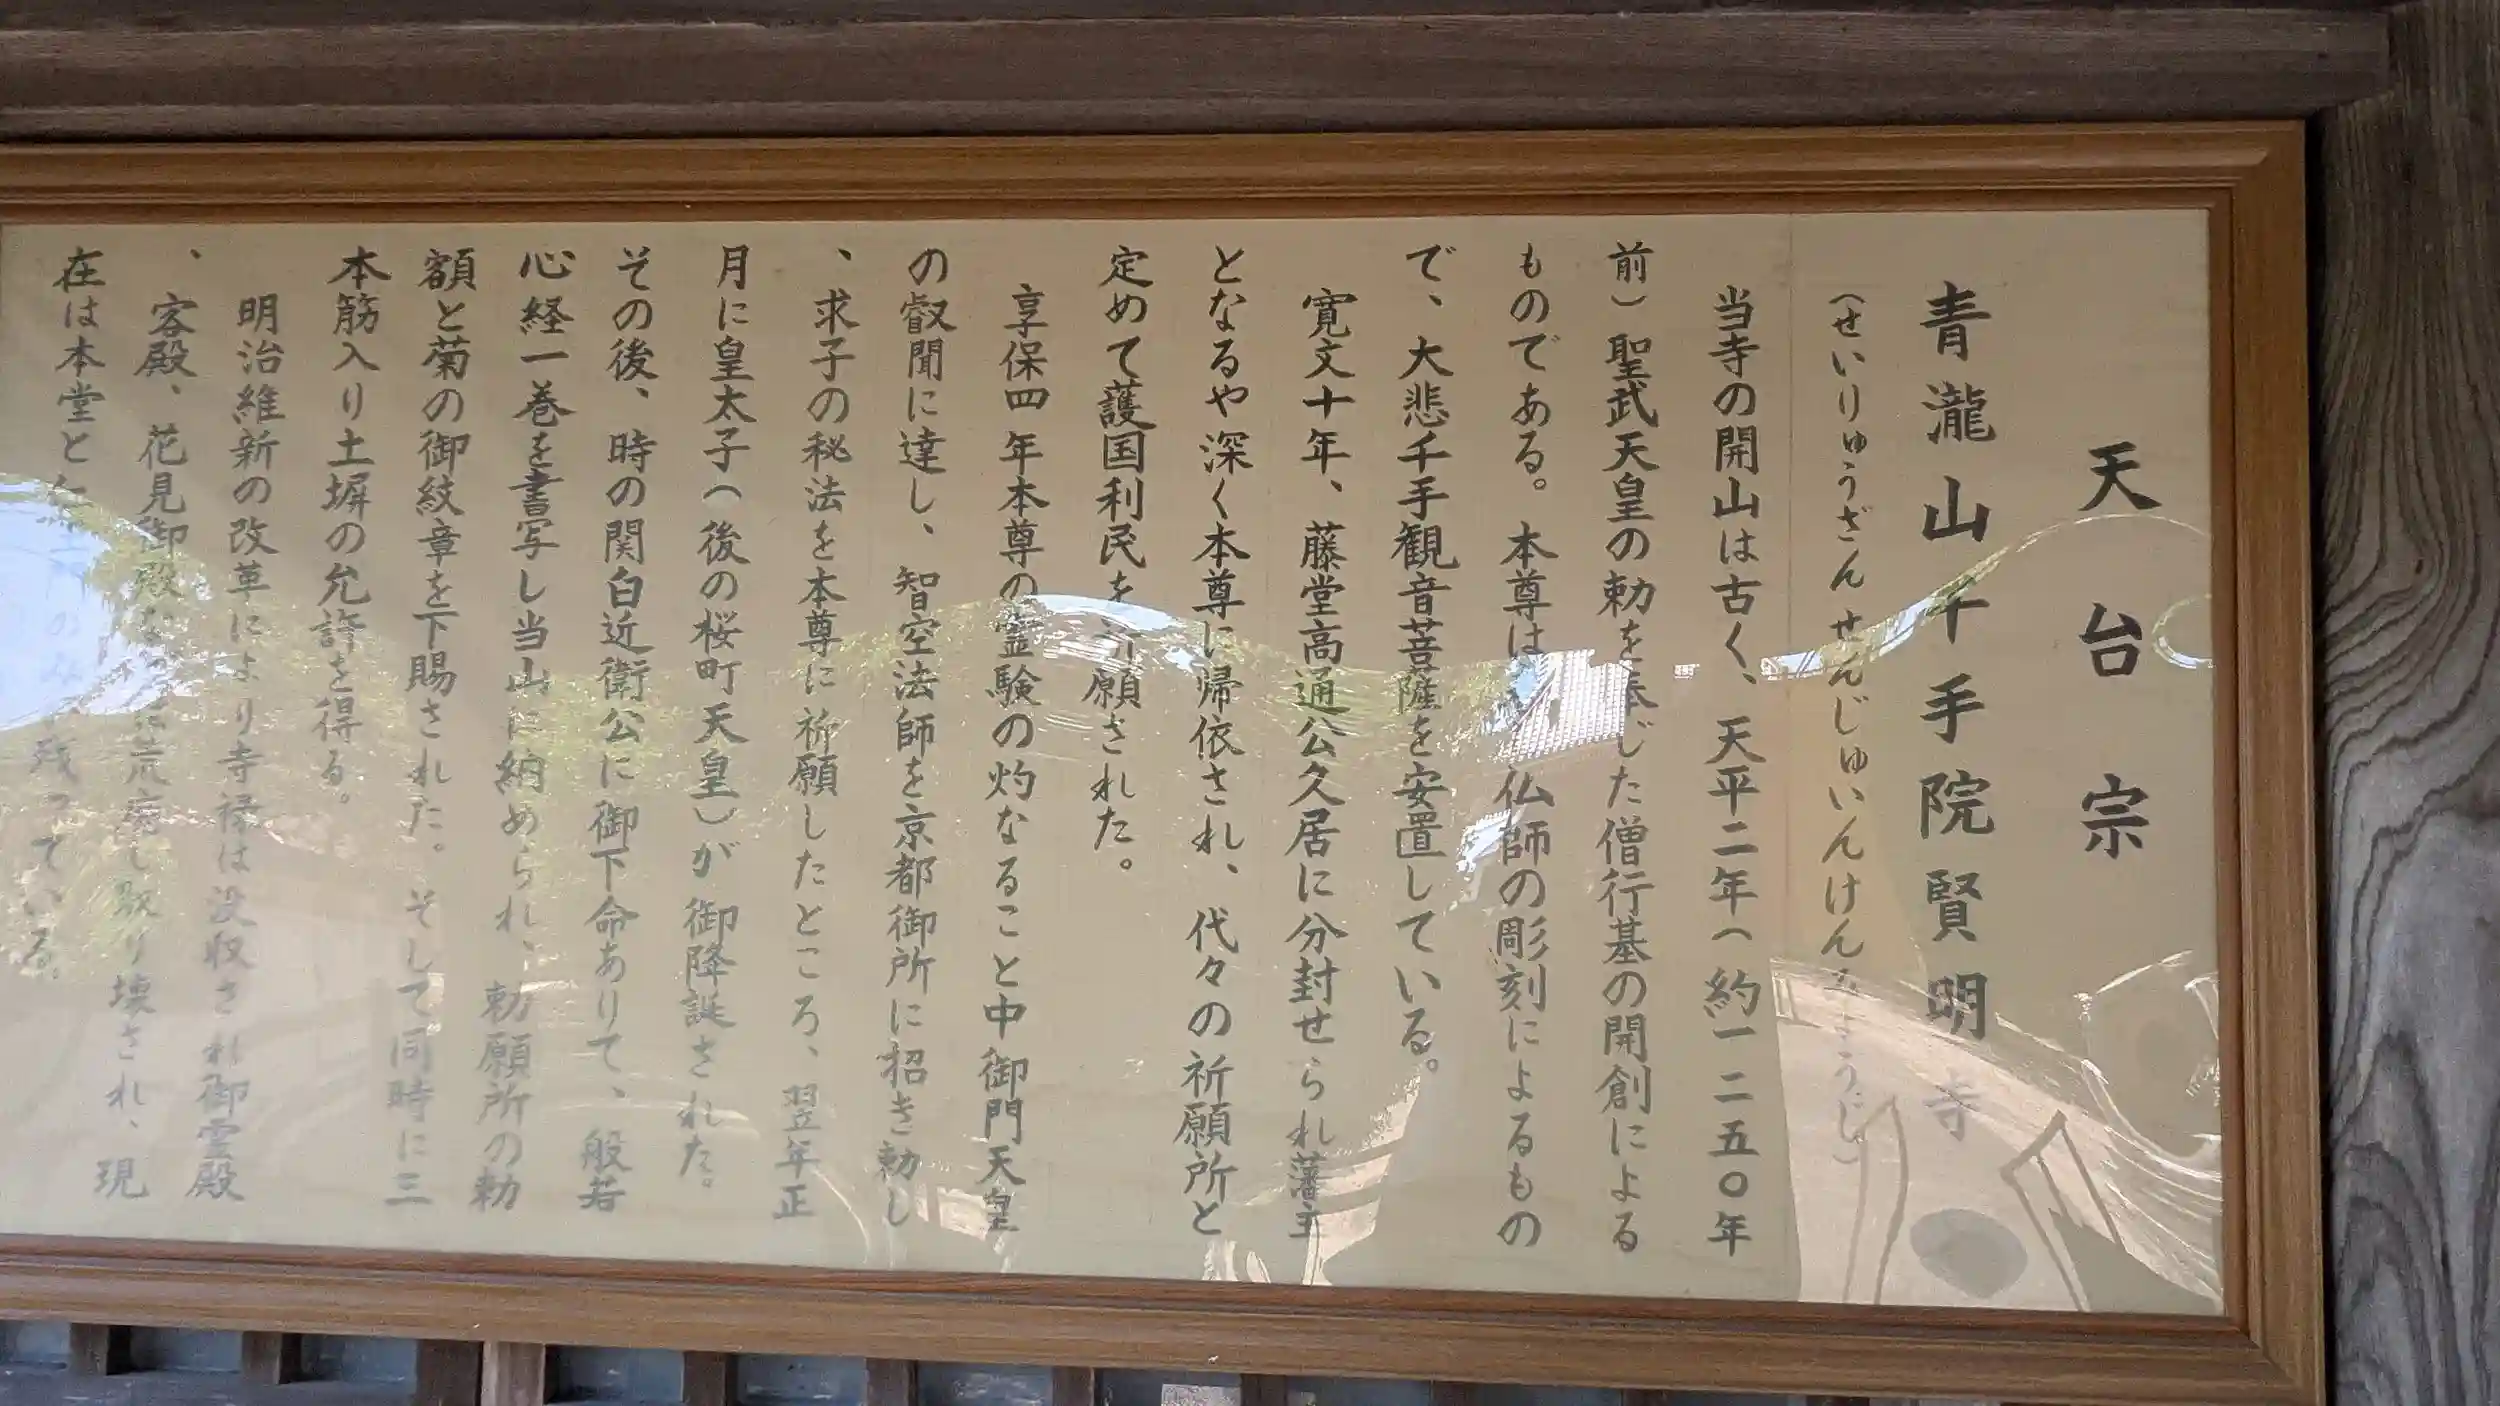 天台宗
青瀧山千手院賢明寺
(せいりゅうざん せんじゅいんけん うじ)
当寺の開山は古く、天平二年(約一二五〇年
前)聖武天皇の勅を奉じた僧行基の開創による
ものである。本尊は 仏師の彫刻によるもの
で、大悲千手観音菩薩を安置している。
寛文十年、藤堂高通公久居に分封せられ藩主
となるや深く本尊に帰依され、代々の祈願所と
定めて護国利民を祈願された。
享保四年本尊の霊験の灼なること中御門天皇
の叡聞に達し、智空法師を京都御所に招き勅し
、求子の秘法を本尊に祈願したところ、翌年正
月に皇太子(後の桜町天皇)が御降誕された。
その後、時の関白近衛公に御下命ありて、般若
心経一巻を書写し当山に納められ、勅願所の勅
額と菊の御紋章を下賜された。そして同時に三
本筋入り土塀の允許を得る。
明治維新の改革により寺禄は没収され御霊殿
、客殿、花見御殿 荒廃し取り壊され、現
在は本堂と のみ残っている。